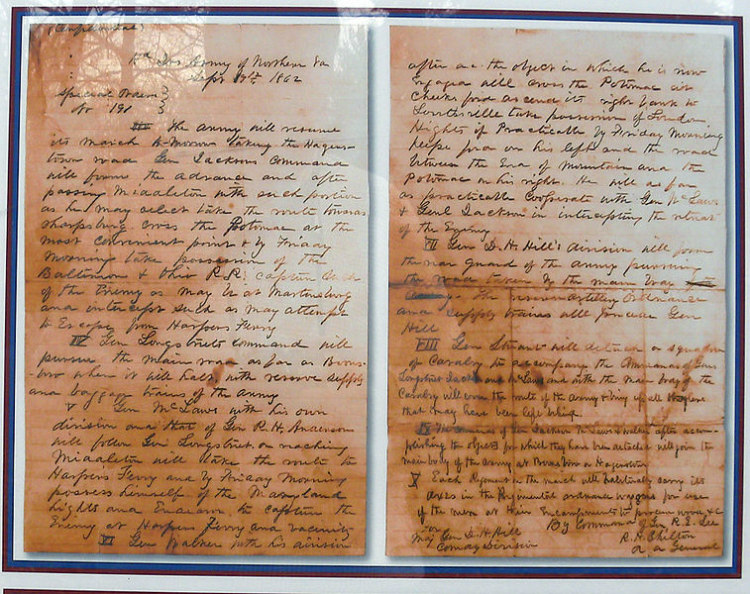 (Confidential)
Hd Qrs Army of Northern Va
Sept 9th 1862
Special Orders
No 191
III The Army will resume
its march to-morrow taking the Hagers-
town road. Gen Jackson's command
will form the advance and after
passing Middleton with such portion
as he may select take the route towards
Sharpsburg cross the Potomac at the
most convenient point & by Friday
Morning take possession of the
Baltimore & Ohio R.R. capture such
of the Enemy as may be at Martinsburg
and intercept such as may attempt
to Escape from Harpers Ferry
IV Gen Longstreets command will
pursue the main road as far as Boons-
boro where it will halt, with reserve supply
and baggage trains of the Army
V Gen McLaws with his own
division and that of Gen R. H. Anderson
will follow Gen Longstreet on reaching
Middleton will take the route to
Harpers Ferry and by Friday Morning
possess himself of the Maryland
hights and Endeavor to capture the
Enemy at Harpers Ferry and vicinity
VI Gen Walker with his division
after the object in which he is now
Engaged will cross the Potomac at
Cheeks ford ascend its right bank to
Lovettsville take possession of Loudon
Hights if Practicably by Friday Morning
Keys ford on his left and the road
between the End of Mountain and the
Potomac on his right. He will as far
as practicable cooperate with Gen McLaws
& Genl Jackson in intercepting the retreat
of the Enemy
VII Gen D. H. Hill's division will form
the rear guard of the Army pursuing
the road taken by the main body
The reserve artillery Ordnance
and supply trains will precede Gen
Hill
VIII Gen Stuart will detach a squadron
of Cavalry to accompany the Commands of Gens
Longstreet Jackson and McLaws and with the main body of the
Cavalry will cover the route of the Army & bring up all
that may have been left behind
IX The commands of Gen Jackson McLaws & Walker after accom-
plishing the objects for which they have been detached will join the
main body of the Army at Boonsboro or Hagerstown
X Each Regiment on the march will habitually carry its
Axes in the Regimental ordnance wagons for use
of the men at their Encampments to procure wood &c
By Command of Gen R. E. Lee
For
R. H. Chilton
Maj Gen D. H. Hill
A. A General
Comdg Division